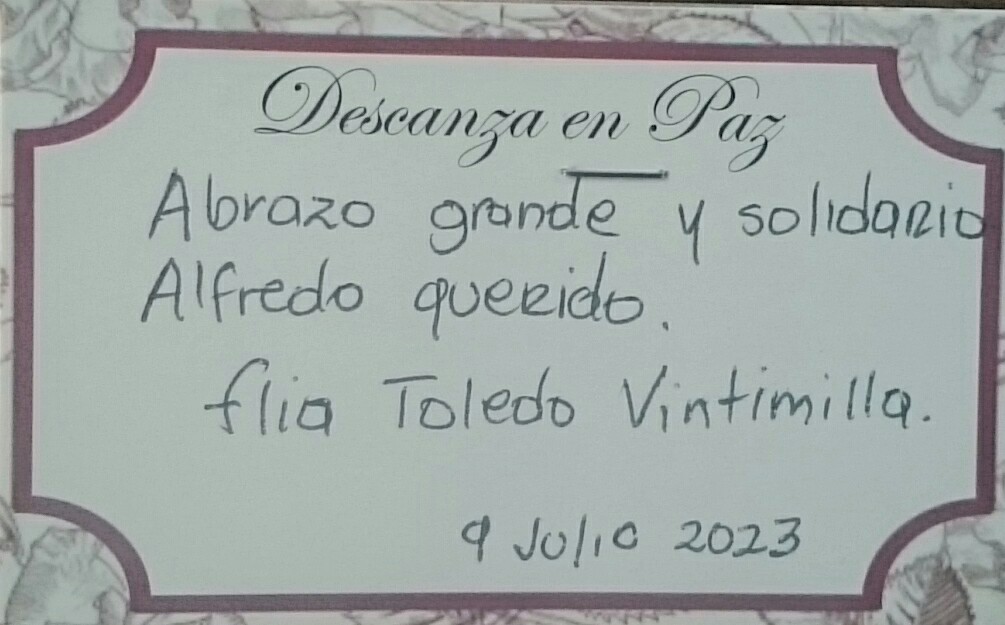 Descanza en Paz
Abrazo grande y solidario
Alfredo querido.
flia Toledo Vintimilla.
9 Julio 2023